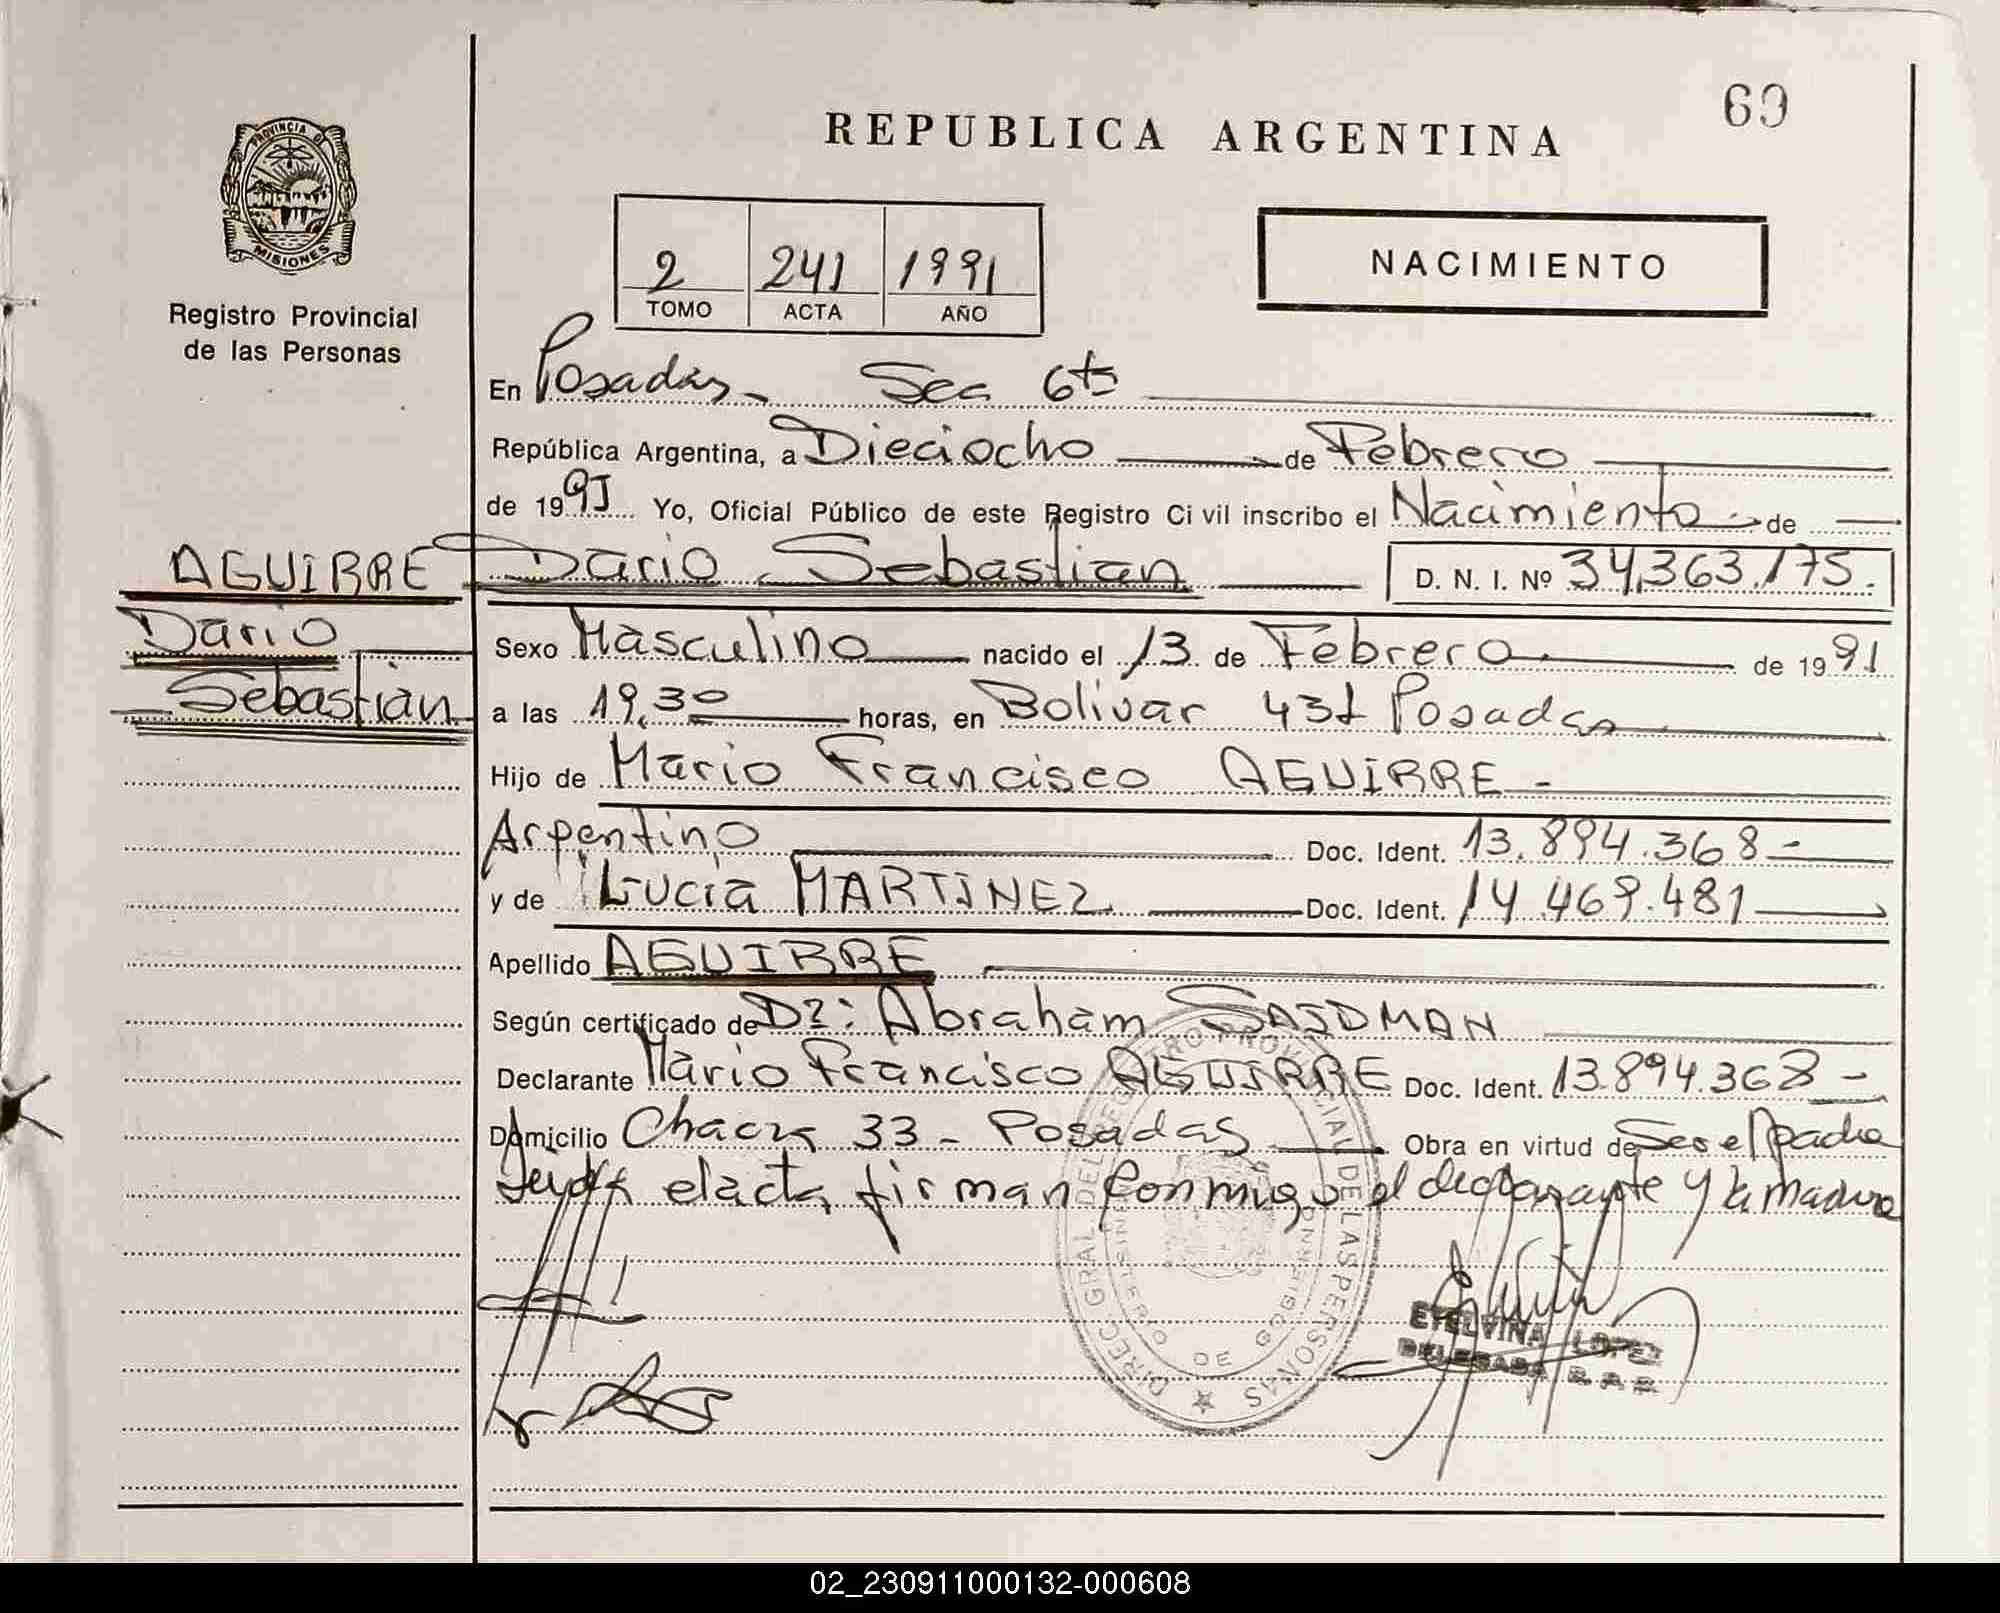 69
REPUBLICA ARGENTINA
PROVINCIA DE
MISIONES
Registro Provincial
de las Personas
2 241 1991
TOMO ACTA AÑO
NACIMIENTO
En Posadas - Sec 6ta
República Argentina, a Dieciocho de Febrero
de 1991 Yo, Oficial Público de este Registro Civil inscribo el Nacimiento de
AGUIRRE Dario Sebastian D. N. I. Nº 34.363.175.
Dario
Sebastian
Sexo Masculino nacido el 13 de Febrero de 1991
a las 19,30 horas, en Bolivar 431 Posadas
Hijo de Mario Francisco AGUIRRE -
Argentino Doc. Ident. 13.894.368 -
y de Lucia MARTINEZ Doc. Ident. 14.469.481
Apellido AGUIRRE
Según certificado de Dr: Abraham SAIDMAN
Declarante Mario Francisco AGUIRRE Doc. Ident. 13.894.368 -
Domicilio Chacra 33 - Posadas Obra en virtud de Ser el padre
leyda el acta, firman conmigo el declarante y la madre
DIREC. GRAL. DEL REGISTRO PROVINCIAL DE LAS PERSONAS
MINISTERIO DE GOBIERNO
ETELVINA LOPEZ
DELEGADA R.P.P.
02_230911000132-000608